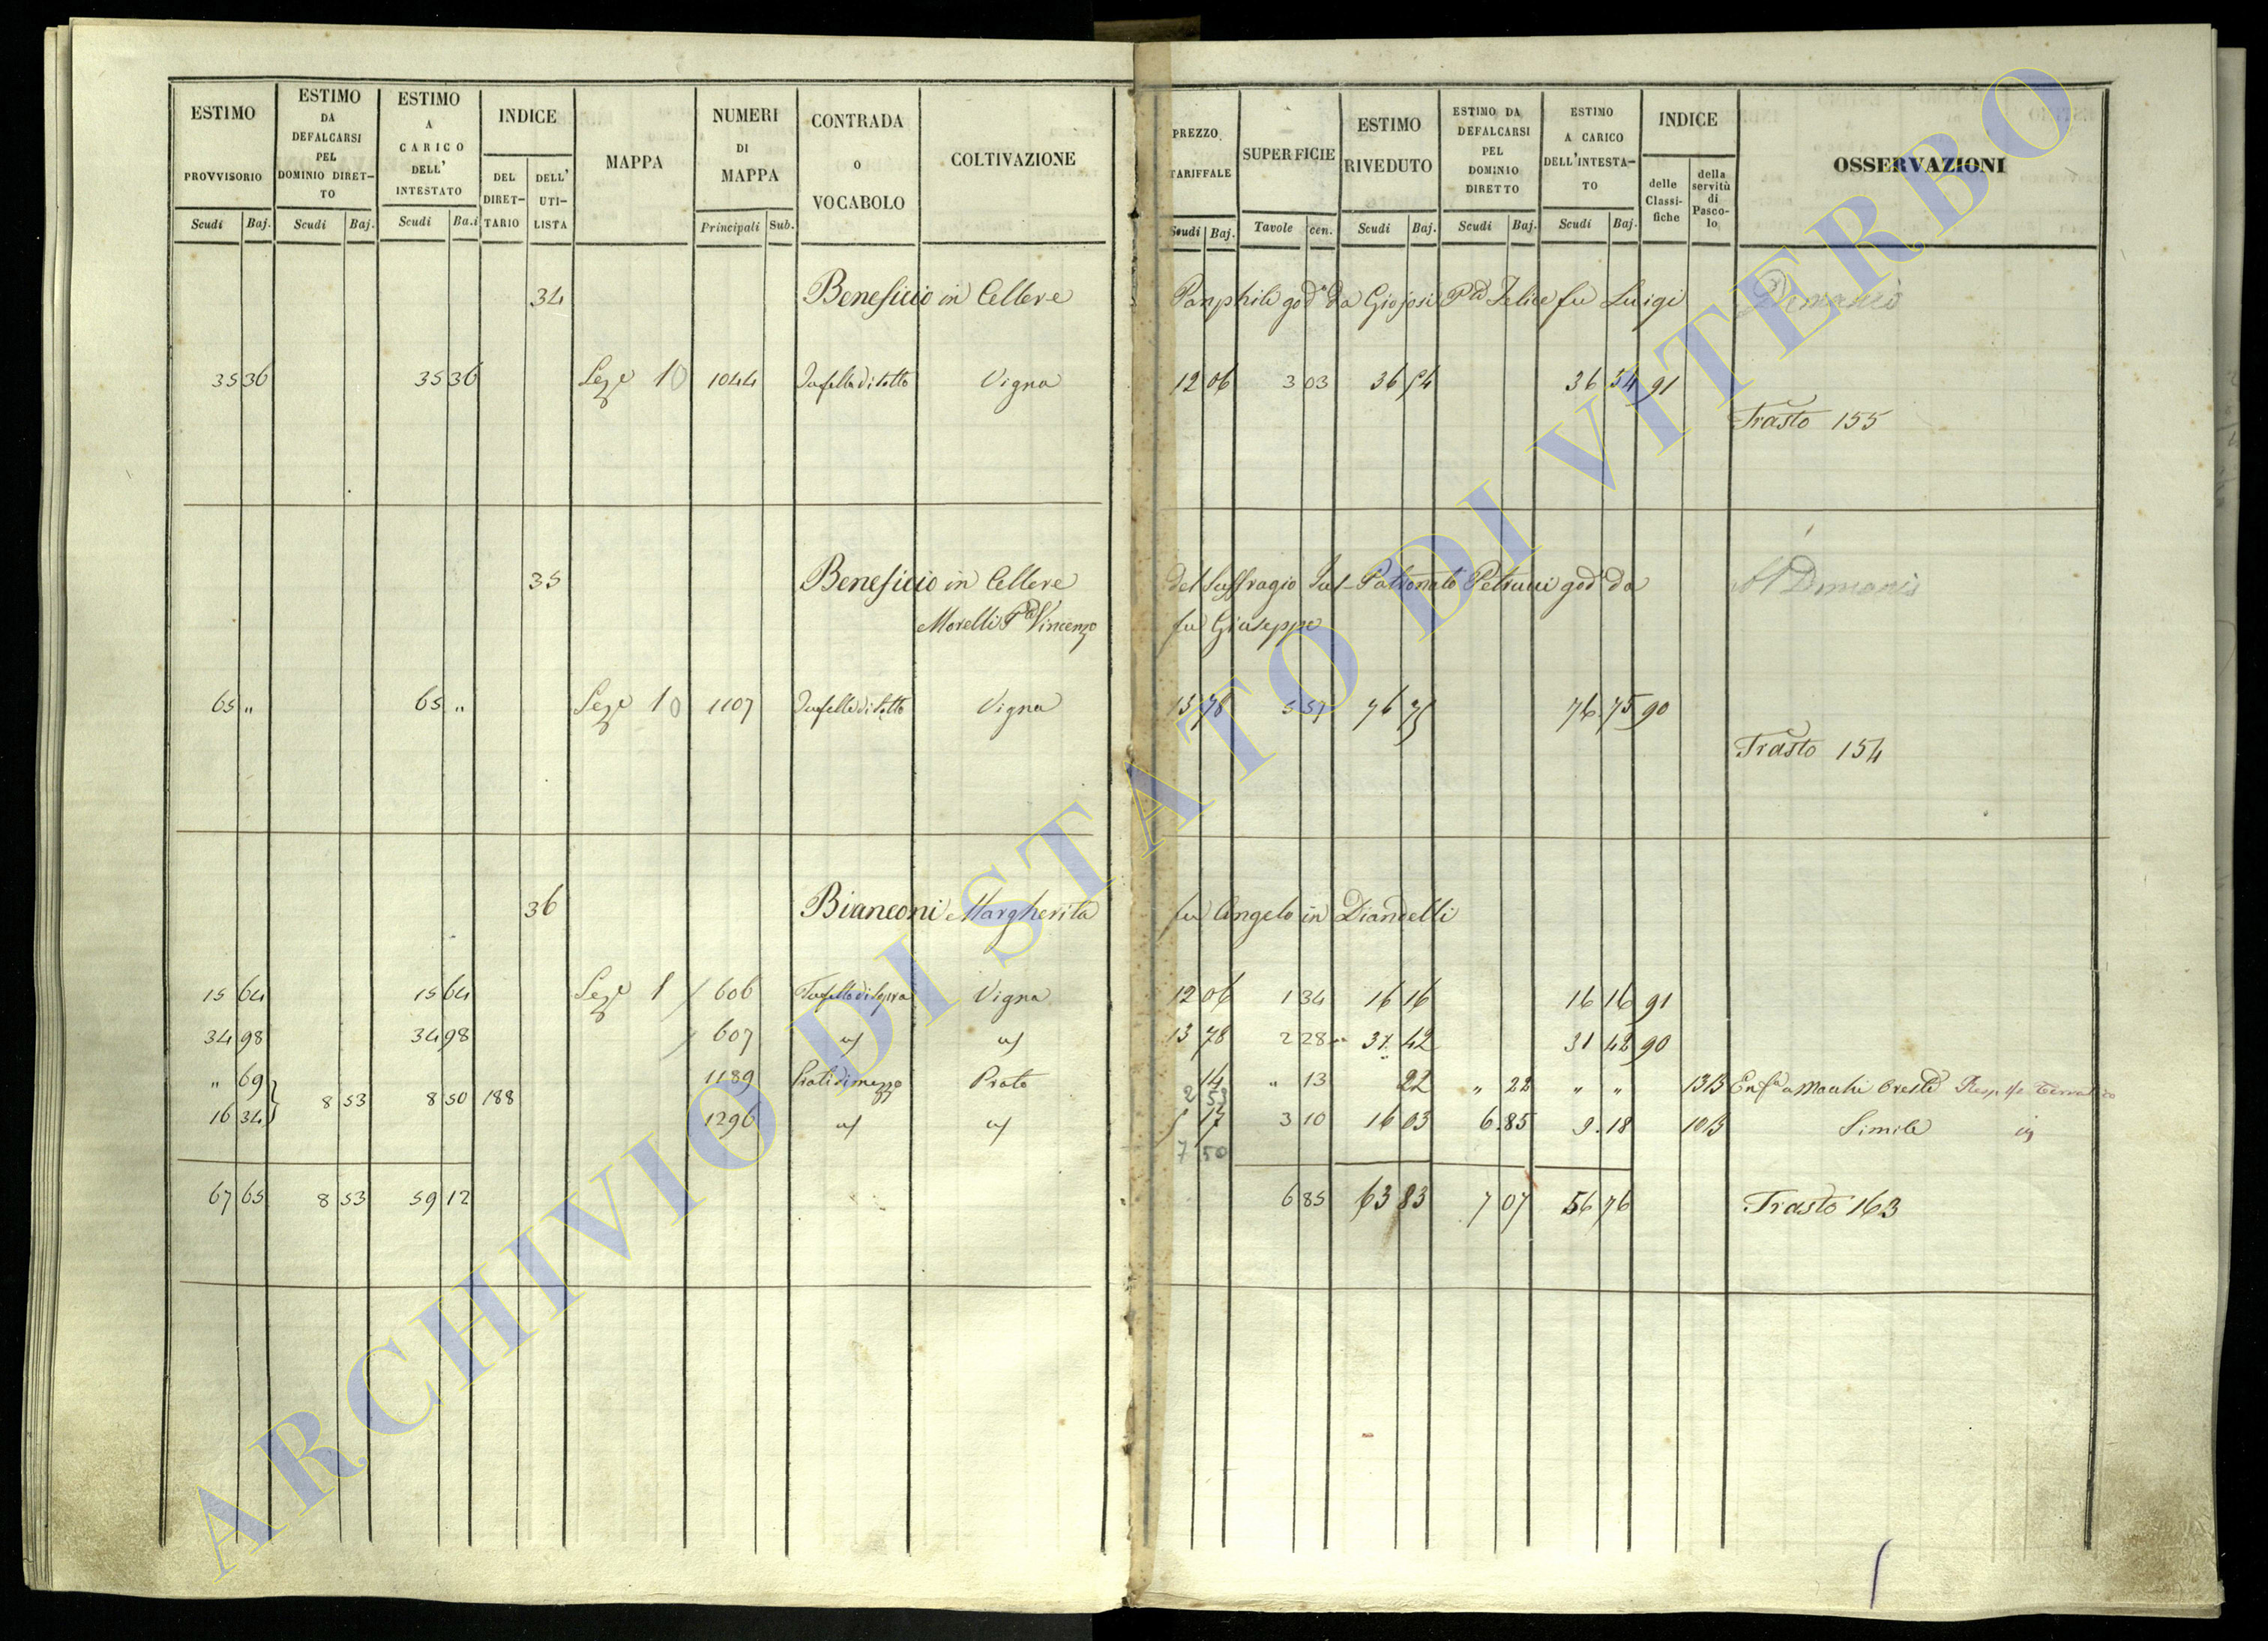 ESTIMO PROVVISORIO Scudi Baj. ESTIMO DA DEFALCARSI PEL DOMINIO DIRET-TO Scudi Baj. ESTIMO A CARICO DELL' INTESTATO Scudi Ba.i INDICE DEL DIRET-TARIO DELL' UTI-LISTA MAPPA NUMERI DI MAPPA Principali Sub. CONTRADA o VOCABOLO COLTIVAZIONE PREZZO TARIFFALE Scudi Baj. SUPERFICIE Tavole cen. ESTIMO RIVEDUTO Scudi Baj. ESTIMO DA DEFALCARSI PEL DOMINIO DIRETTO Scudi Baj. ESTIMO A CARICO DELL'INTESTA-TO Scudi Baj. INDICE delle Classi-fiche della servitù di Pasco-lo OSSERVAZIONI
34 Beneficio in Cellere Panphili god.o da Giojosi P.d Felice fu Luigi Demanio
35 36 35 36 Sez.e 10 1044 Tufella di sotto Vigna 12 06 3 03 36 54 36 54 91
Trasto 155
35 Beneficio in Cellere del Suffragio Jus-Patronato Petrucci god.o da Al Demanio
Morelli P.d Vincenzo fu Giuseppe
65 „ 65 „ Sez.e 10 1107 Tufelle di sotto Vigna 13 78 5 57 76 75 76 75 90
Trasto 154
36 Bianconi Margherita fu Angelo in Diandelli
15 64 15 64 Sez.e 1 606 Tufella di Sopra Vigna 12 06 1 34 16 16 16 16 91
34 98 34 98 607 a/ a/ 13 78 2 28 31 42 31 42 90
„ 69 1189 Prati di mezzo Prato 14 „ 13 22 „ 22 „ „ 13 13 Enf.a a Macchi Oreste
8 53 8 50 188 2 53
16 34 1296 a/ a/ 5 17 3 10 16 03 6.85 9.18 10 13 Simile
7 50
67 65 8 53 59 12 6 85 63 83 7 07 56 76 Trasto 163
ARCHIVIO DI STATO DI VITERBO